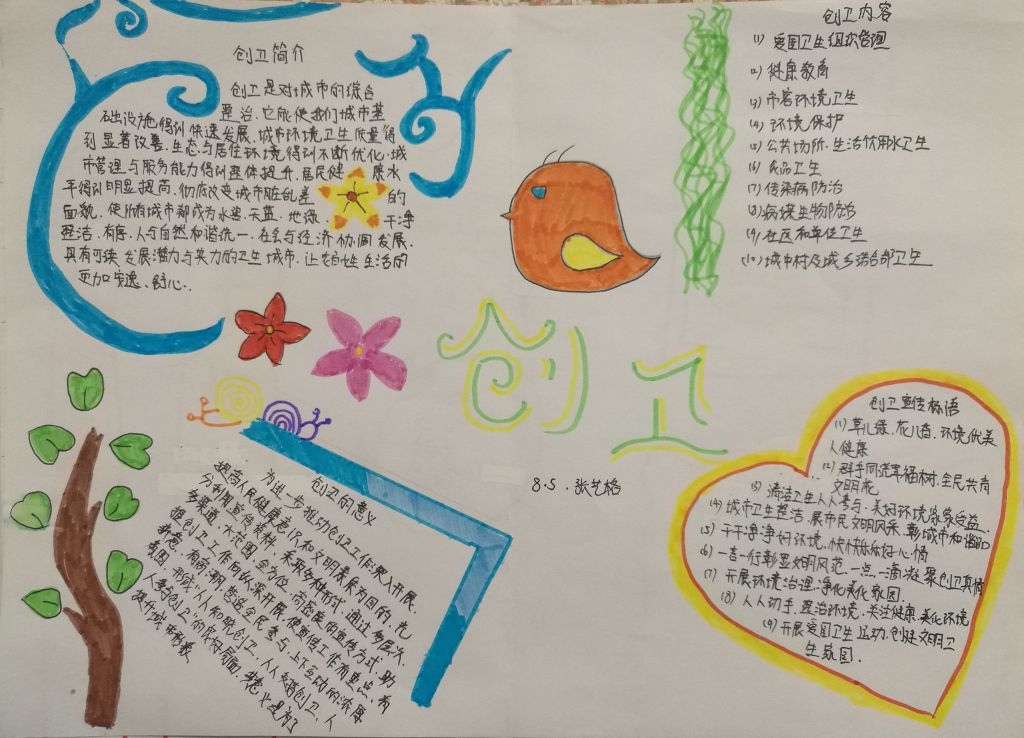 创卫简介
创卫是对城市的综合
整治.它能使我们城市基
础设施得到快速发展,城市环境卫生质量得
到显著改善.生态与居住环境得到不断优化.城
市管理与服务能力得到整体提升.居民健康水
平得到明显提高.彻底改变城市脏乱差的
面貌.使所有城市都成为水秀.天蓝.地绿.干净
整洁.有序.人与自然和谐统一.社会与经济协调发展.
具有可续发展潜力与实力的卫生城市.让老百姓生活的
更加安逸、舒心.
创卫内容
(1) 爱国卫生组织管理
(2) 健康教育
(3) 市容环境卫生
(4) 环境保护
(5) 公共场所.生活饮用水卫生
(6) 食品卫生
(7) 传染病防治
(8) 病媒生物防治
(9) 社区和单位卫生
(10) 城中村及城乡结合部卫生
创卫
8.5.张艺格
创卫的意义
为进一步推动创卫工作深入开展.
提高人民健康意识和文明素质为目的,充
分利用宣传资料,采取多种形式,通过多层次.
多渠道.大范围.全方位.高密度的宣传方式.助
推创卫工作向纵深开展.使宣传工作有重点.有
新意.有高潮.营造全民参与.上下互动的浓厚
氛围.形成“人人知晓创卫.人人支持创卫.人
人参与创卫”的良好局面.意义是为了
提升城市形象
创卫宣传标语
(1) 草儿绿.花儿香.环境优美
人健康
(2) 群手同浇幸福树.全民共育
文明花
(3) 清洁卫生人人参与.美好环境家家受益.
(4) 城市卫生整洁.展市民文明风采.彰城市和谐
(5) 干干净净好环境.快快乐乐好心情
(6) 一言一行彰显文明风范.一点一滴凝聚创卫真情
(7) 开展环境治理.净化美化氛围.
(8) 人人动手.整治环境.关注健康.美化环境
(9) 开展爱国卫生运动.创建文明卫
生氛围.